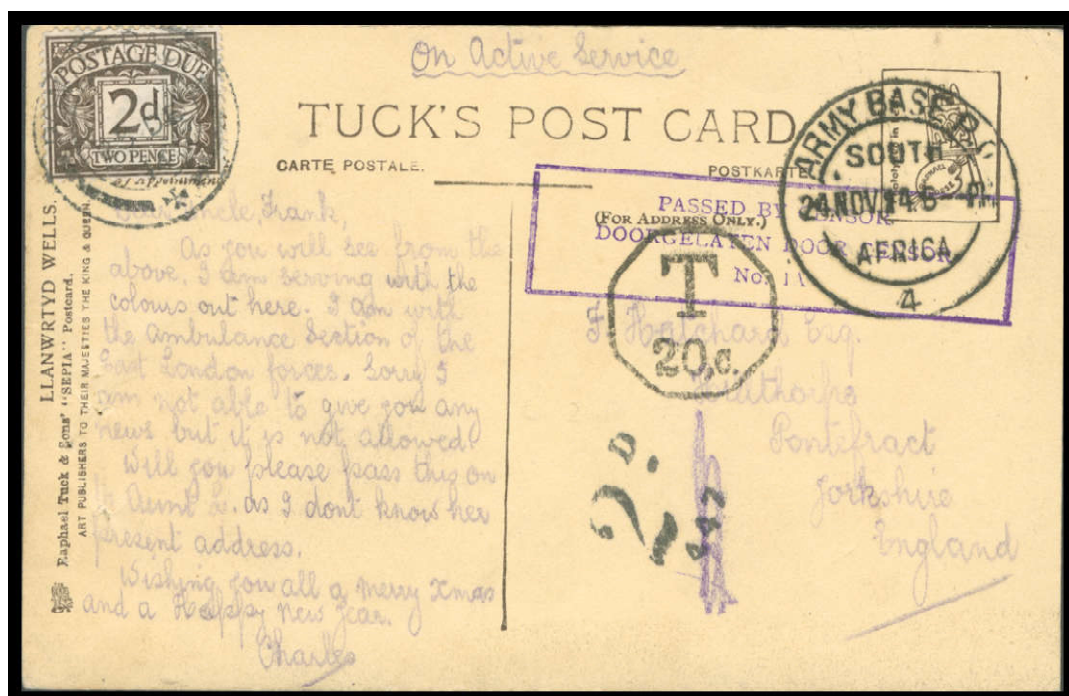 On Active Service
POSTAGE DUE
2d
TWO PENCE
TUCK'S POST CARD
CARTE POSTALE.
POSTKARTE
(FOR ADDRESS ONLY.)
ARMY BASE P.O.
SOUTH
24 NOV 14.6-
AFRICA
4
PASSED BY CENSOR.
DOORGELATEN DOOR CENSOR
No.
T
20.c.
2D.
LLANWRTYD WELLS.
Raphael Tuck & Sons' "SEPIA" Postcard.
ART PUBLISHERS TO THEIR MAJESTIES THE KING & QUEEN.
Dear Uncle Frank,
As you will see from the
above, I am serving with the
colours out here. I am with
the Ambulance Section of the
East London forces. Sorry I
am not able to give you any
news but it is not allowed
Will you please pass this on
Aunt L. as I dont know her
present address.
Wishing you all a merry Xmas
and a Happy New Year.
Charles
F. Hatchard Esq.
Pontefract
Yorkshire
England